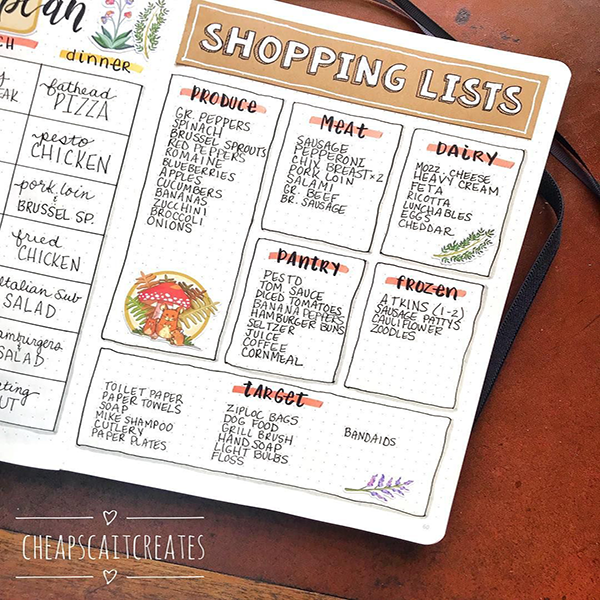 plan
CH
dinner
fathead
PIZZA
pesto
CHICKEN
pork loin
&
BRUSSEL SP.
fried
CHICKEN
Italian Sub
SALAD
hamburgers
&
SALAD
SHOPPING LISTS
PRODUCE
GR. PEPPERS
SPINACH
BRUSSEL SPROUTS
RED PEPPERS
ROMAINE
BLUEBERRIES
APPLES
CUCUMBERS
BANANAS
ZUCCHINI
BROCCOLI
ONIONS
MEAT
SAUSAGE
PEPPERONI
CHIX BREAST x 2
PORK LOIN
SALAMI
GR. BEEF
BR. SAUSAGE
DAIRY
MOZZ. CHEESE
HEAVY CREAM
FETA
RICOTTA
LUNCHABLES
EGGS
CHEDDAR
PANTRY
PESTO
TOM. SAUCE
DICED TOMATOES
BANANA PEPPERS
HAMBURGER BUNS
SELTZER
JUICE
COFFEE
CORNMEAL
FROZEN
ATKINS (1-2)
SAUSAGE PATTYS
CAULIFLOWER
ZOODLES
TARGET
TOILET PAPER
PAPER TOWELS
SOAP
MIKE SHAMPOO
CUTLERY
PAPER PLATES
ZIPLOC BAGS
DOG FOOD
GRILL BRUSH
HAND SOAP
LIGHT BULBS
FLOSS
BANDAIDS
CHEAPSCAITCREATES